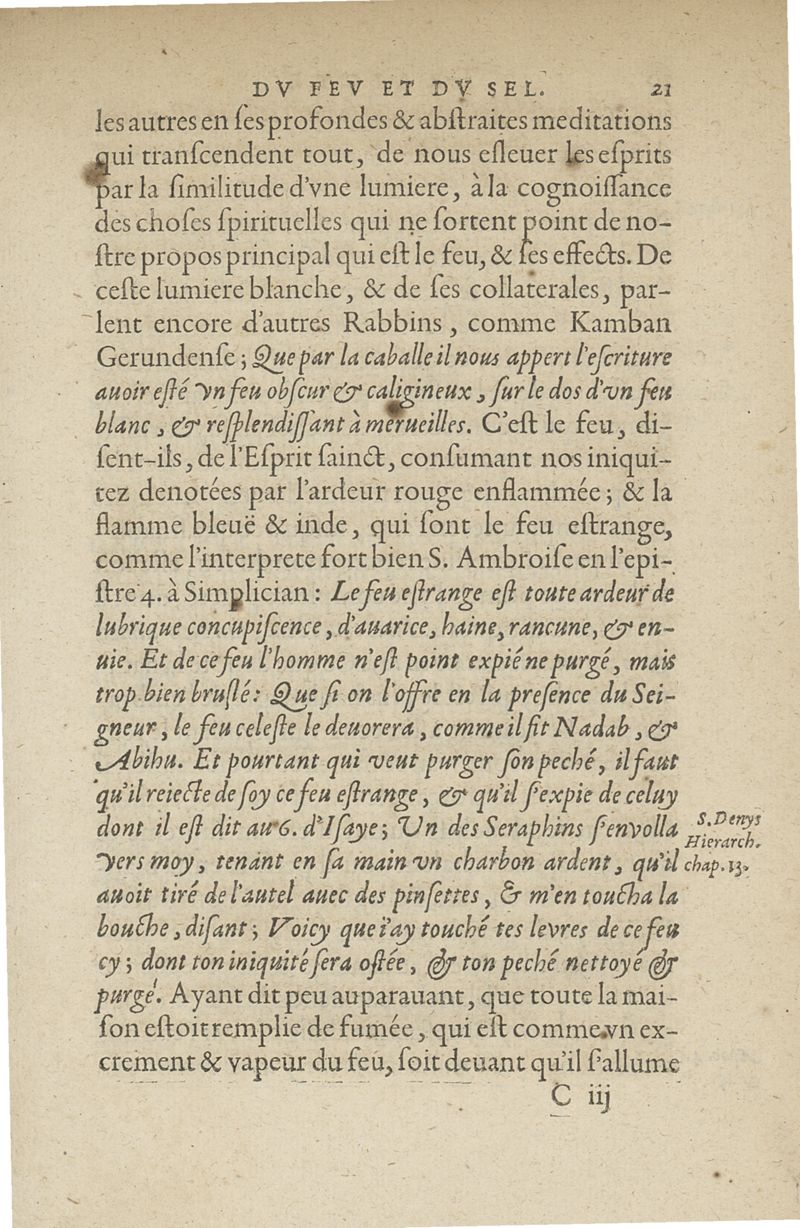 DV FEV ET DV SEL. 21
les autres en ſes profondes & abſtraites meditations
qui tranſcendent tout, de nous eſleuer les eſprits
par la ſimilitude d'vne lumiere, à la cognoiſſance
des choſes ſpirituelles qui ne ſortent point de no-
ſtre propos principal qui eſt le feu, & ſes effects. De
ceſte lumiere blanche, & de ſes collaterales, par-
lent encore d'autres Rabbins, comme Kamban
Gerundenſe; Que par la caballe il nous appert l'eſcriture
auoir eſté vn feu obſcur & caligineux, ſur le dos d'vn feu
blanc, & reſplendiſſant à merueilles. C'eſt le feu, di-
ſent-ils, de l'Eſprit ſainct, conſumant nos iniqui-
tez denotées par l'ardeur rouge enflammée; & la
flamme bleuë & inde, qui ſont le feu eſtrange,
comme l'interprete fort bien S. Ambroiſe en l'epi-
ſtre 4. à Simplician: Le feu eſtrange eſt toute ardeur de
lubrique concupiſcence, d'auarice, haine, rancune, & en-
uie. Et de ce feu l'homme n'eſt point expié ne purgé, mais
trop bien bruſlé: Que ſi on l'offre en la preſence du Sei-
gneur, le feu celeſte le deuorera, comme il fit Nadab, &
Abihu. Et pourtant qui veut purger ſon peché, il faut
qu'il reiecte de ſoy ce feu eſtrange, & qu'il ſ'expie de celuy
dont il eſt dit au 6. d'Iſaye; Vn des Seraphins ſ'envolla
vers moy, tenant en ſa main vn charbon ardent, qu'il
auoit tiré de l'autel auec des pinſettes, & m'en toucha la
bouche, diſant; Voicy que i'ay touché tes levres de ce feu
cy; dont ton iniquité ſera oſtée, & ton peché nettoyé &
purgé. Ayant dit peu auparauant, que toute la mai-
ſon eſtoit remplie de fumée, qui eſt comme vn ex-
crement & vapeur du feu, ſoit deuant qu'il ſ'allume
C iij
S. Denys
Hierarch.
chap. 13.